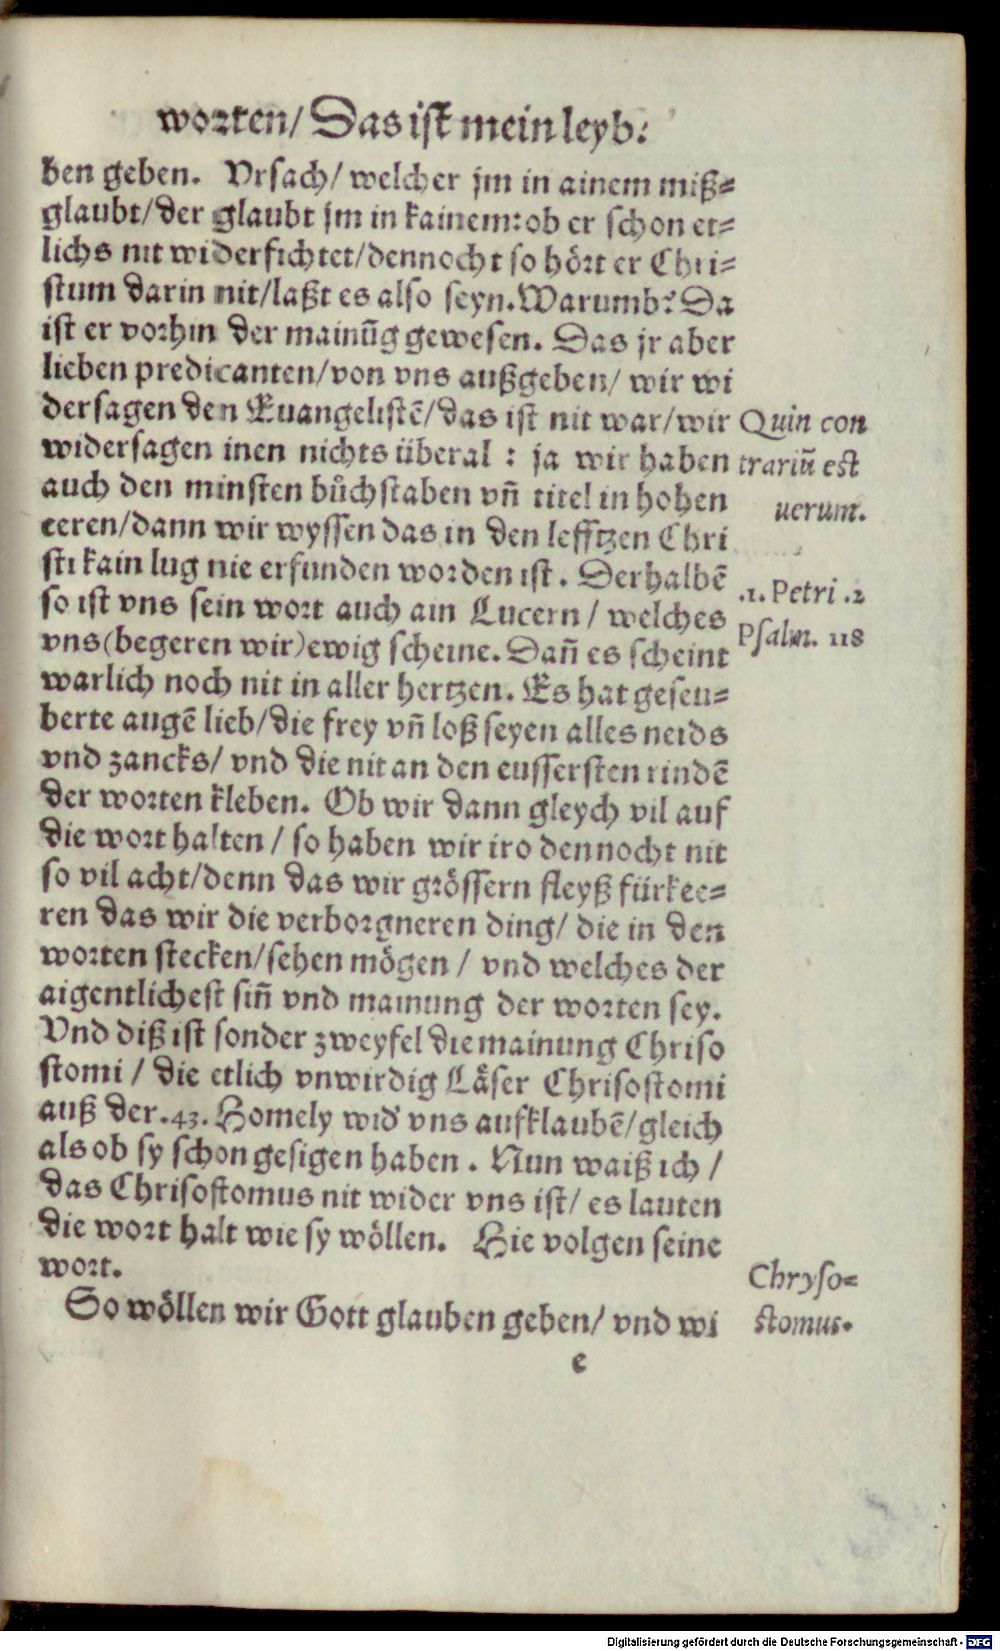 worten/ Das ist mein leyb:
ben geben. Vrsach/ welcher jm in ainem miß⸗
glaubt/der glaubt jm in kainem:ob er schon et⸗
lichs nit widerfichtet/dennocht so hört er Chri⸗
stum darin nit/laßt es also seyn. Warumb? Da
ist er vorhin der mainūg gewesen. Das jr aber
lieben predicanten/von vns außgeben/ wir wi
dersagen den Euangelistē/das ist nit war/wir
widersagen inen nichts überal : ja wir haben
auch den minsten bůchstaben vñ titel in hohen
eeren/dann wir wyssen das in den lefftzen Chri
sti kain lug nie erfunden worden ist. Derhalbē
so ist vns sein wort auch ain Lucern/ welches
vns(begeren wir)ewig scheine. Dañ es scheint
warlich noch nit in aller hertzen. Es hat geseu⸗
berte augē lieb/die frey vñ loß seyen alles neids
vnd zancks/ vnd die nit an den eussersten rindē
der worten kleben. Ob wir dann gleych vil auf
die wort halten / so haben wir iro dennocht nit
so vil acht/denn das wir grössern fleyß fürkee⸗
ren das wir die verborgneren ding/ die in den
worten stecken/sehen mögen / vnd welches der
aigentlichest siñ vnd mainung der worten sey.
Vnd diß ist sonder zweyfel die mainung Chriso
stomi / die etlich vnwirdig Läser Chrisostomi
auß der .43. Homely wid' vns aufklaubē/gleich
als ob sy schon gesigen haben . Nun waiß ich /
das Chrisostomus nit wider vns ist/ es lauten
die wort halt wie sy wöllen. Hie volgen seine
wort.
So wöllen wir Gott glauben geben/ vnd wi
e
Quin con
trariū est
uerum.
.1. Petri .2
Psalm. 118
Chryso⸗
stomus.
Digitalisierung gefördert durch die Deutsche Forschungsgemeinschaft - DFG